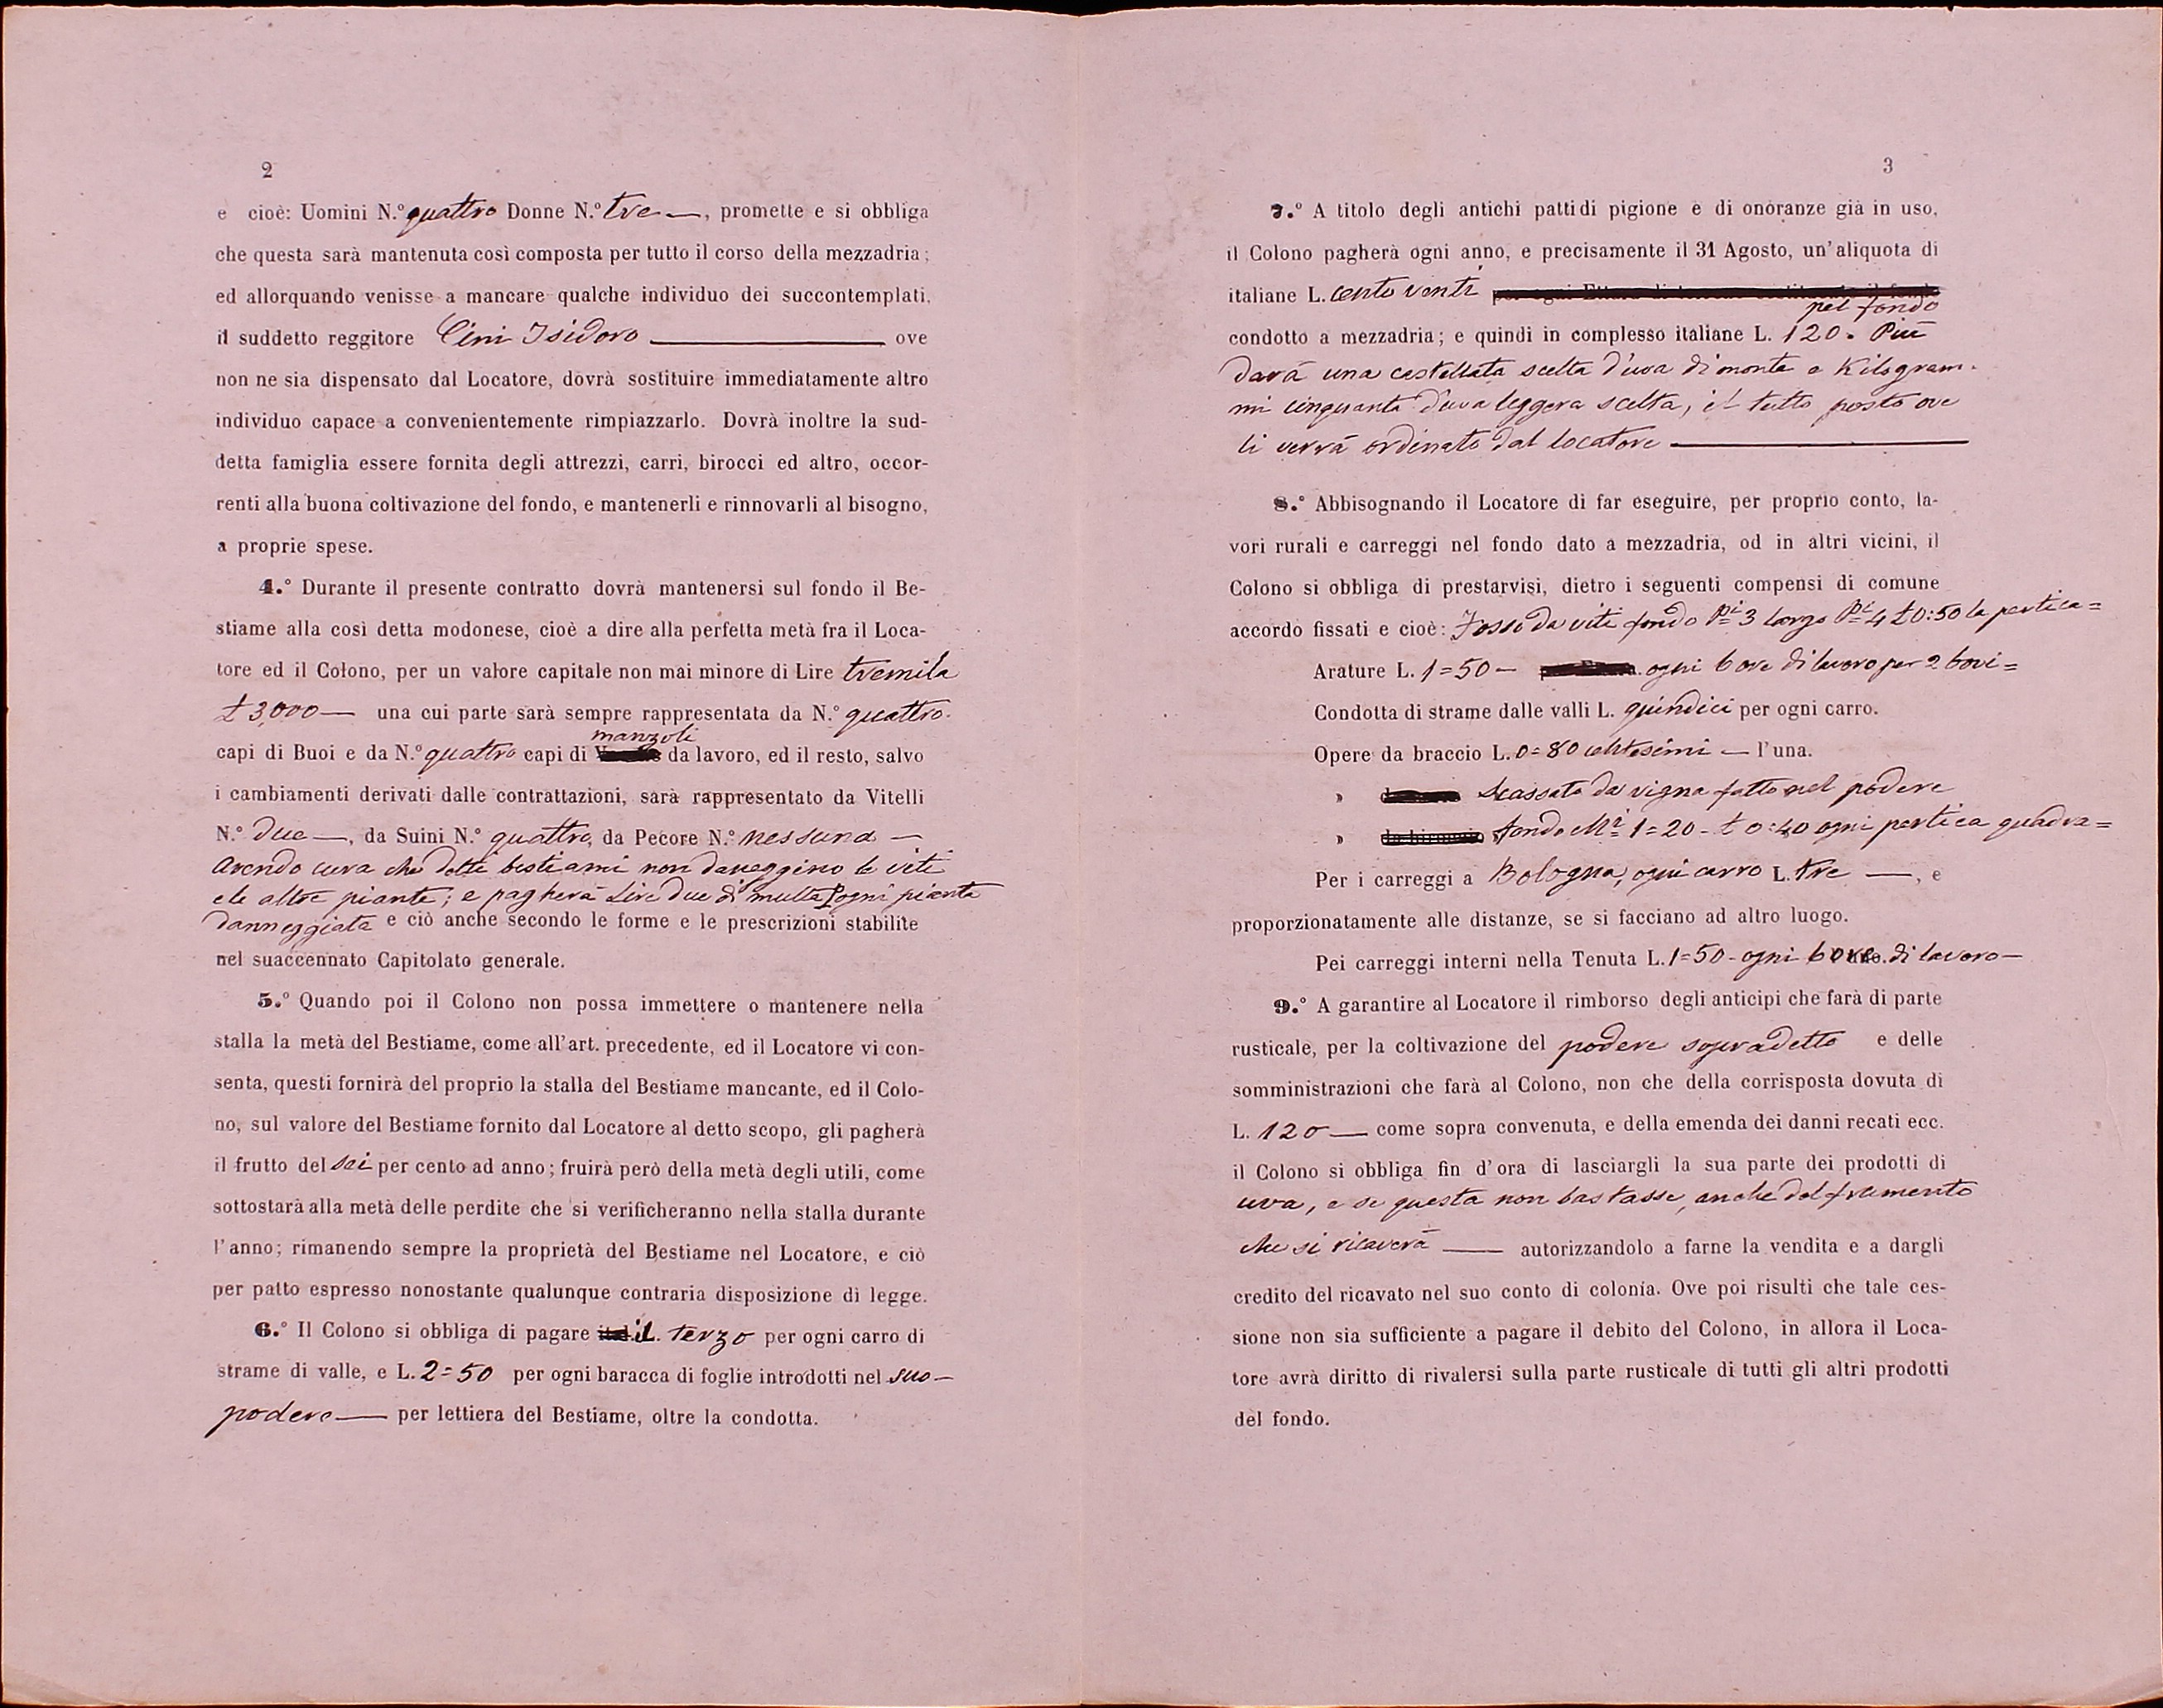 2
e cioè: Uomini N.° quattro Donne N.° tre —, promette e si obbliga
che questa sarà mantenuta così composta per tutto il corso della mezzadria;
ed allorquando venisse a mancare qualche individuo dei succontemplati,
il suddetto reggitore Cini Isidoro ——— ove
non ne sia dispensato dal Locatore, dovrà sostituire immediatamente altro
individuo capace a convenientemente rimpiazzarlo. Dovrà inoltre la sud-
detta famiglia essere fornita degli attrezzi, carri, birocci ed altro, occor-
renti alla buona coltivazione del fondo, e mantenerli e rinnovarli al bisogno,
a proprie spese.
4.° Durante il presente contratto dovrà mantenersi sul fondo il Be-
stiame alla così detta modonese, cioè a dire alla perfetta metà fra il Loca-
tore ed il Colono, per un valore capitale non mai minore di Lire tremila
£ 3,000 — una cui parte sarà sempre rappresentata da N.° quattro
manzoli
capi di Buoi e da N.° quattro capi di da lavoro, ed il resto, salvo
i cambiamenti derivati dalle contrattazioni, sarà rappresentato da Vitelli
N.° due —, da Suini N.° quattro, da Pecore N.° nessuna —
avendo cura che detti bestiami non daneggino le viti
e le altre piante; e pagherà Lire due di multa ogni pianta
danneggiata e ciò anche secondo le forme e le prescrizioni stabilite
nel suaccennato Capitolato generale.
5.° Quando poi il Colono non possa immettere o mantenere nella
stalla la metà del Bestiame, come all'art. precedente, ed il Locatore vi con-
senta, questi fornirà del proprio la stalla del Bestiame mancante, ed il Colo-
no, sul valore del Bestiame fornito dal Locatore al detto scopo, gli pagherà
il frutto del sei per cento ad anno; fruirà però della metà degli utili, come
sottostarà alla metà delle perdite che si verificheranno nella stalla durante
l'anno; rimanendo sempre la proprietà del Bestiame nel Locatore, e ciò
per patto espresso nonostante qualunque contraria disposizione di legge.
6.° Il Colono si obbliga di pagare il terzo per ogni carro di
strame di valle, e L. 2=50 per ogni baracca di foglie introdotti nel suo —
podere — per lettiera del Bestiame, oltre la condotta.
3
7.° A titolo degli antichi patti di pigione e di onoranze già in uso,
il Colono pagherà ogni anno, e precisamente il 31 Agosto, un'aliquota di
italiane L. cento venti
pel fondo
condotto a mezzadria; e quindi in complesso italiane L. 120. Più
darà una castellata scelta d'uva di monte e Kilogram-
mi cinquanta d'uva leggera scelta, il tutto posto ove
li verrà ordinato dal locatore ———
8.° Abbisognando il Locatore di far eseguire, per proprio conto, la-
vori rurali e carreggi nel fondo dato a mezzadria, od in altri vicini, il
Colono si obbliga di prestarvisi, dietro i seguenti compensi di comune
accordo fissati e cioè: Fosse da viti fondo Pi 3 largo Pi 4 £ 0:50 la pertica=
Arature L. 1=50 — ogni bove di lavoro per 2 bovi=
Condotta di strame dalle valli L. quindici per ogni carro.
Opere da braccio L. 0=80 centesimi — l'una.
» Scassato da vigna fatto nel podere
» fondo Mi 1=20 - £ 0:40 ogni pertica quadra=
Per i carreggi a Bologna, ogni carro L. tre —, e
proporzionatamente alle distanze, se si facciano ad altro luogo.
Pei carreggi interni nella Tenuta L. 1=50 - ogni bove di lavoro —
9.° A garantire al Locatore il rimborso degli anticipi che farà di parte
rusticale, per la coltivazione del podere sopradetto e delle
somministrazioni che farà al Colono, non che della corrisposta dovuta di
L. 120 — come sopra convenuta, e della emenda dei danni recati ecc.
il Colono si obbliga fin d'ora di lasciargli la sua parte dei prodotti di
uva, e se questa non bastasse, anche del frumento
che si ricaverà — autorizzandolo a farne la vendita e a dargli
credito del ricavato nel suo conto di colonía. Ove poi risulti che tale ces-
sione non sia sufficiente a pagare il debito del Colono, in allora il Loca-
tore avrà diritto di rivalersi sulla parte rusticale di tutti gli altri prodotti
del fondo.